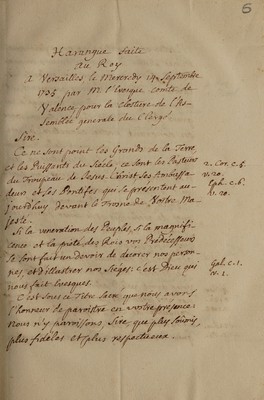 6
Harangue faite
au Roy
à Versailles le Mercredy 14e Septembre
1735 par Mr l'Evesque comte de
Valence, pour la closture de l'As-
semblée generale du Clergé
Sire.
Ce ne sont point les Grands de la Terre
et les Puissants du Siecle, ce sont les Pasteurs
du Trouppeau de Jesus-Christ, ses Ambassa-
deurs et ses Pontifes qui se presentent au-
jourdhuy devant le Trosne de Vostre Ma-
jesté.
2. Cor. c. 5.
v. 20.
Eph. c. 6.
v. 20.
Si la veneration des Peuples, si la magnifi-
cence et la pieté des Rois vos Predecesseurs
se sont fait un devoir de decorer nos person-
nes, et d'illustrer nos Sieges; c'est Dieu qui
nous fait Evesques.
Gal. c. 1.
v. 1.
C'est sous ce Titre Sacré que nous avons
l'honneur de paroistre en vostre presence:
nous n'y paroissons, Sire, que plus soumis,
plus fideles et plus respectueux.